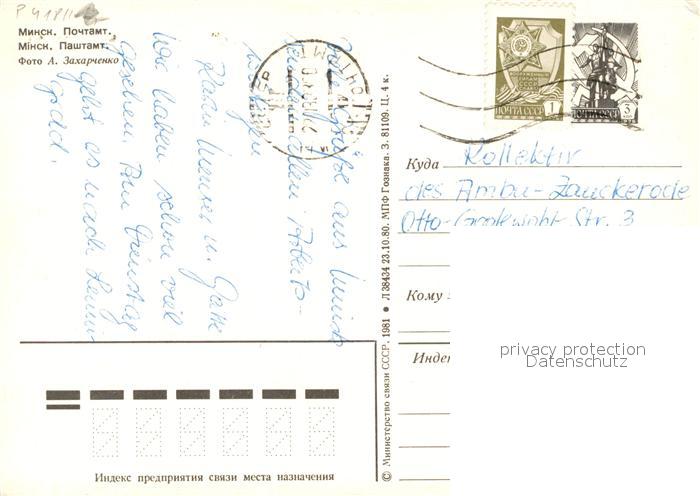 P 41811
Минск. Почтамт.
Мінск. Паштамт.
Фото А. Захарченко
Viele Grüße aus Minsk
sendet allen Arbeits-
kollegen
Karin Menzel u. Gatte
Wir haben schon viel
gesehen. Am Dienstag
geht es nach Lenin
grad.
ПОЧТА СССР 1
ПОЧТА СССР 3
Куда Kollektiv
des Ambu-Zauckerode
Otto-Grotewohl-Str. 3
Кому
Индек
privacy protection
Datenschutz
© Министерство связи СССР. 1981 ● Л 38434 23.10.80. МПФ Гознака. З. 81109. Ц. 4 к.
Индекс предприятия связи места назначения